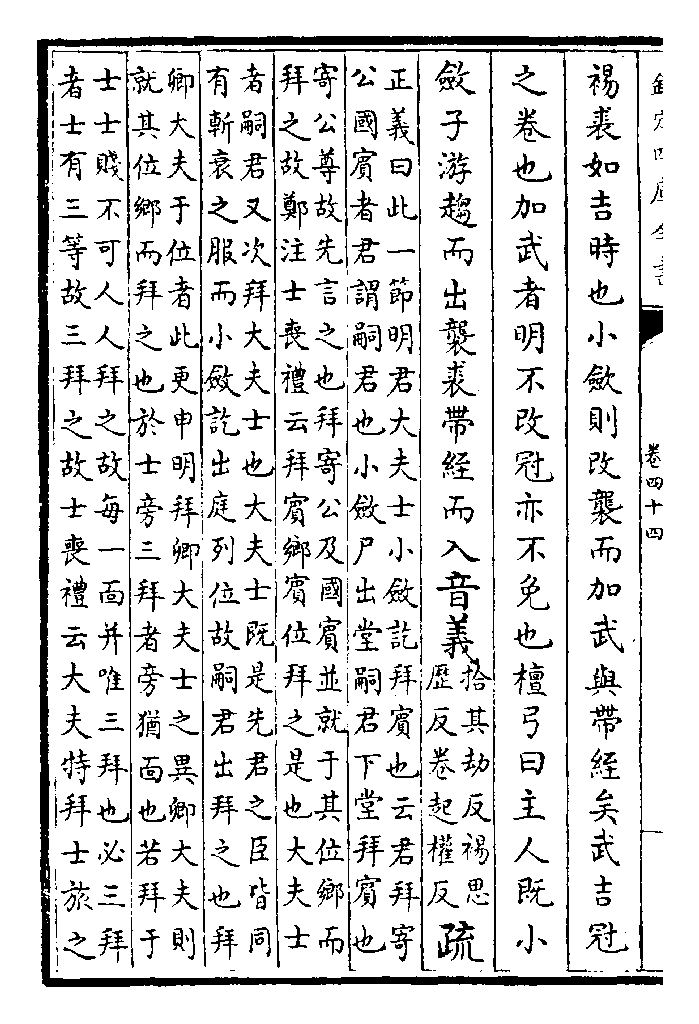 欽定四庫全書
卷四十四
裼裘如吉時也小歛則改襲而加武與帶絰矣武吉冠
之卷也加武者明不改冠亦不免也檀弓曰主人既小
斂子游趨而出襲裘帶絰而入音義
拾其劫反裼思
歷反卷起權反
疏
正義曰此一節明君大夫士小斂訖拜賓也云君拜寄
公國賓者君謂嗣君也小斂尸出堂嗣君下堂拜賓也
寄公尊故先言之也拜寄公及國賓並就于其位鄉而
拜之故鄭注士喪禮云拜賓鄉賓位拜之是也大夫士
者嗣君又次拜大夫士也大夫士既是先君之臣皆同
有斬衰之服而小斂訖出庭列位故嗣君出拜之也拜
卿大夫于位者此更申明拜卿大夫士之異卿大夫則
就其位鄉而拜之也於士旁三拜者旁猶面也若拜于
士士賤不可人人拜之故每一面并唯三拜也必三拜
者士有三等故三拜之故士喪禮云大夫特拜士旅之